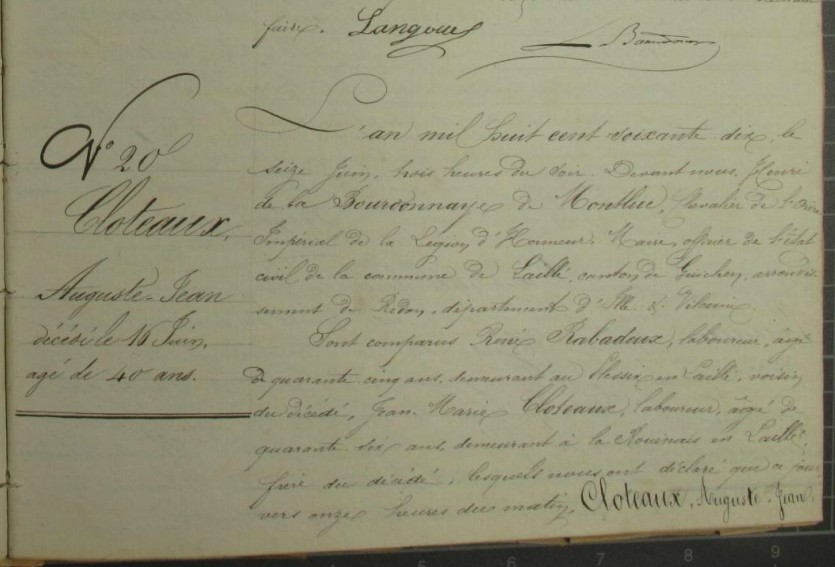 faire. Langouet L. Baudouin
N° 20
Cloteaux,
Auguste-Jean
décédé le 16 Juin,
agé de 40 ans.
L'an mil huit cent soixante dix, le
seize Juin, trois heures du soir. Devant nous, Henri
de la Bourdonnaye de Montluc, Chevalier de l'Ordre
Impérial de la Légion d'Honneur, Maire, officier de l'état
civil de la commune de Laillé, canton de Guichen, arrondis-
sement de Redon, département d'Ille & Vilaine
Sont comparus René Rabadeux, laboureur, âgé
de quarante cinq ans, demeurant au Plessix en Laillé, voisin
du décédé, Jean-Marie Cloteaux, laboureur, âgé de
quarante six ans, demeurant à la Rouinais en Laillé
frère du décédé, lesquels nous ont déclaré que ce jour
vers onze heures du matin, Cloteaux, Auguste-Jean,
5 6 7 8 9